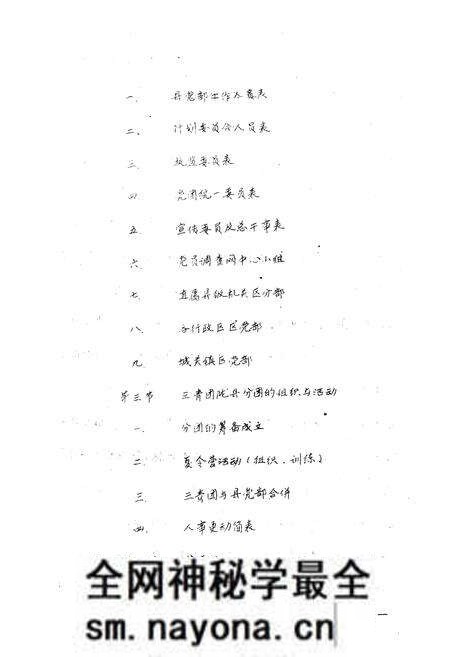 一、 县党部工作人员表
二、 计划委员会人员表
三 执监委员表
四 党团统一委员表
五 宣传委员及总干事表
六 党员调查网中心小组
七 直属县级机关区分部
八、 各行政区区党部
九 城关镇区党部
第三节 三青团陇县分团的组织与活动
一、 分团的筹备成立
二 夏令营活动(组织、训练)
三 三青团与县党部合併
四、 人事更动简表
全网神秘学最全
sm.nayona.cn
一